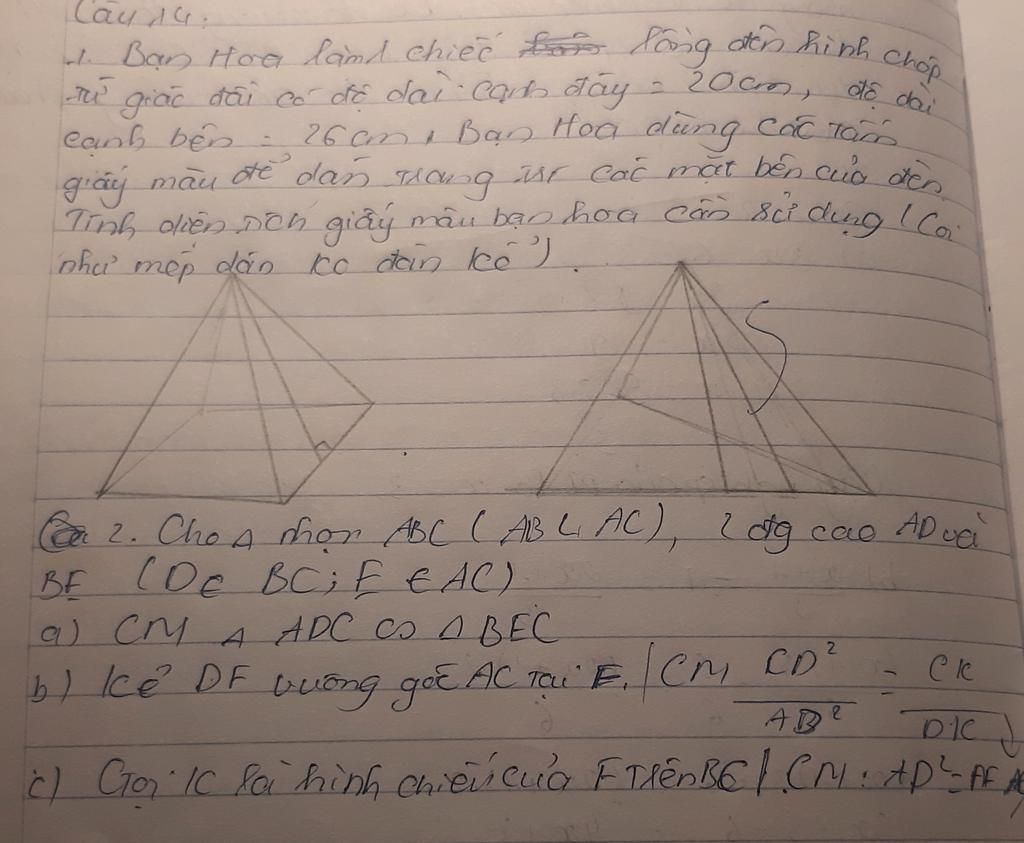 Câu 14:
1. Bạn Hoa làm 1 chiếc lồng đèn hình chóp
tứ giác đều có độ dài cạnh đáy = 20cm, độ dài
cạnh bên = 26cm, Bạn Hoa dùng các tấm
giấy màu để dán trang trí các mặt bên của đèn.
Tính diện tích giấy màu bạn hoa cần sử dụng (Coi
như mép dán ko đán kể).
2. Cho Δ nhọn ABC (AB < AC), 2 đg cao AD và
BE (D ∈ BC; E ∈ AC)
a) CM Δ ADC ∽ Δ BEC
b) Kẻ DF vuông góc AC tại F. | CM CD²/AD² = CK/DK
c) Gọi K là hình chiếu của F trên BC | CM: AD² = AF.AC